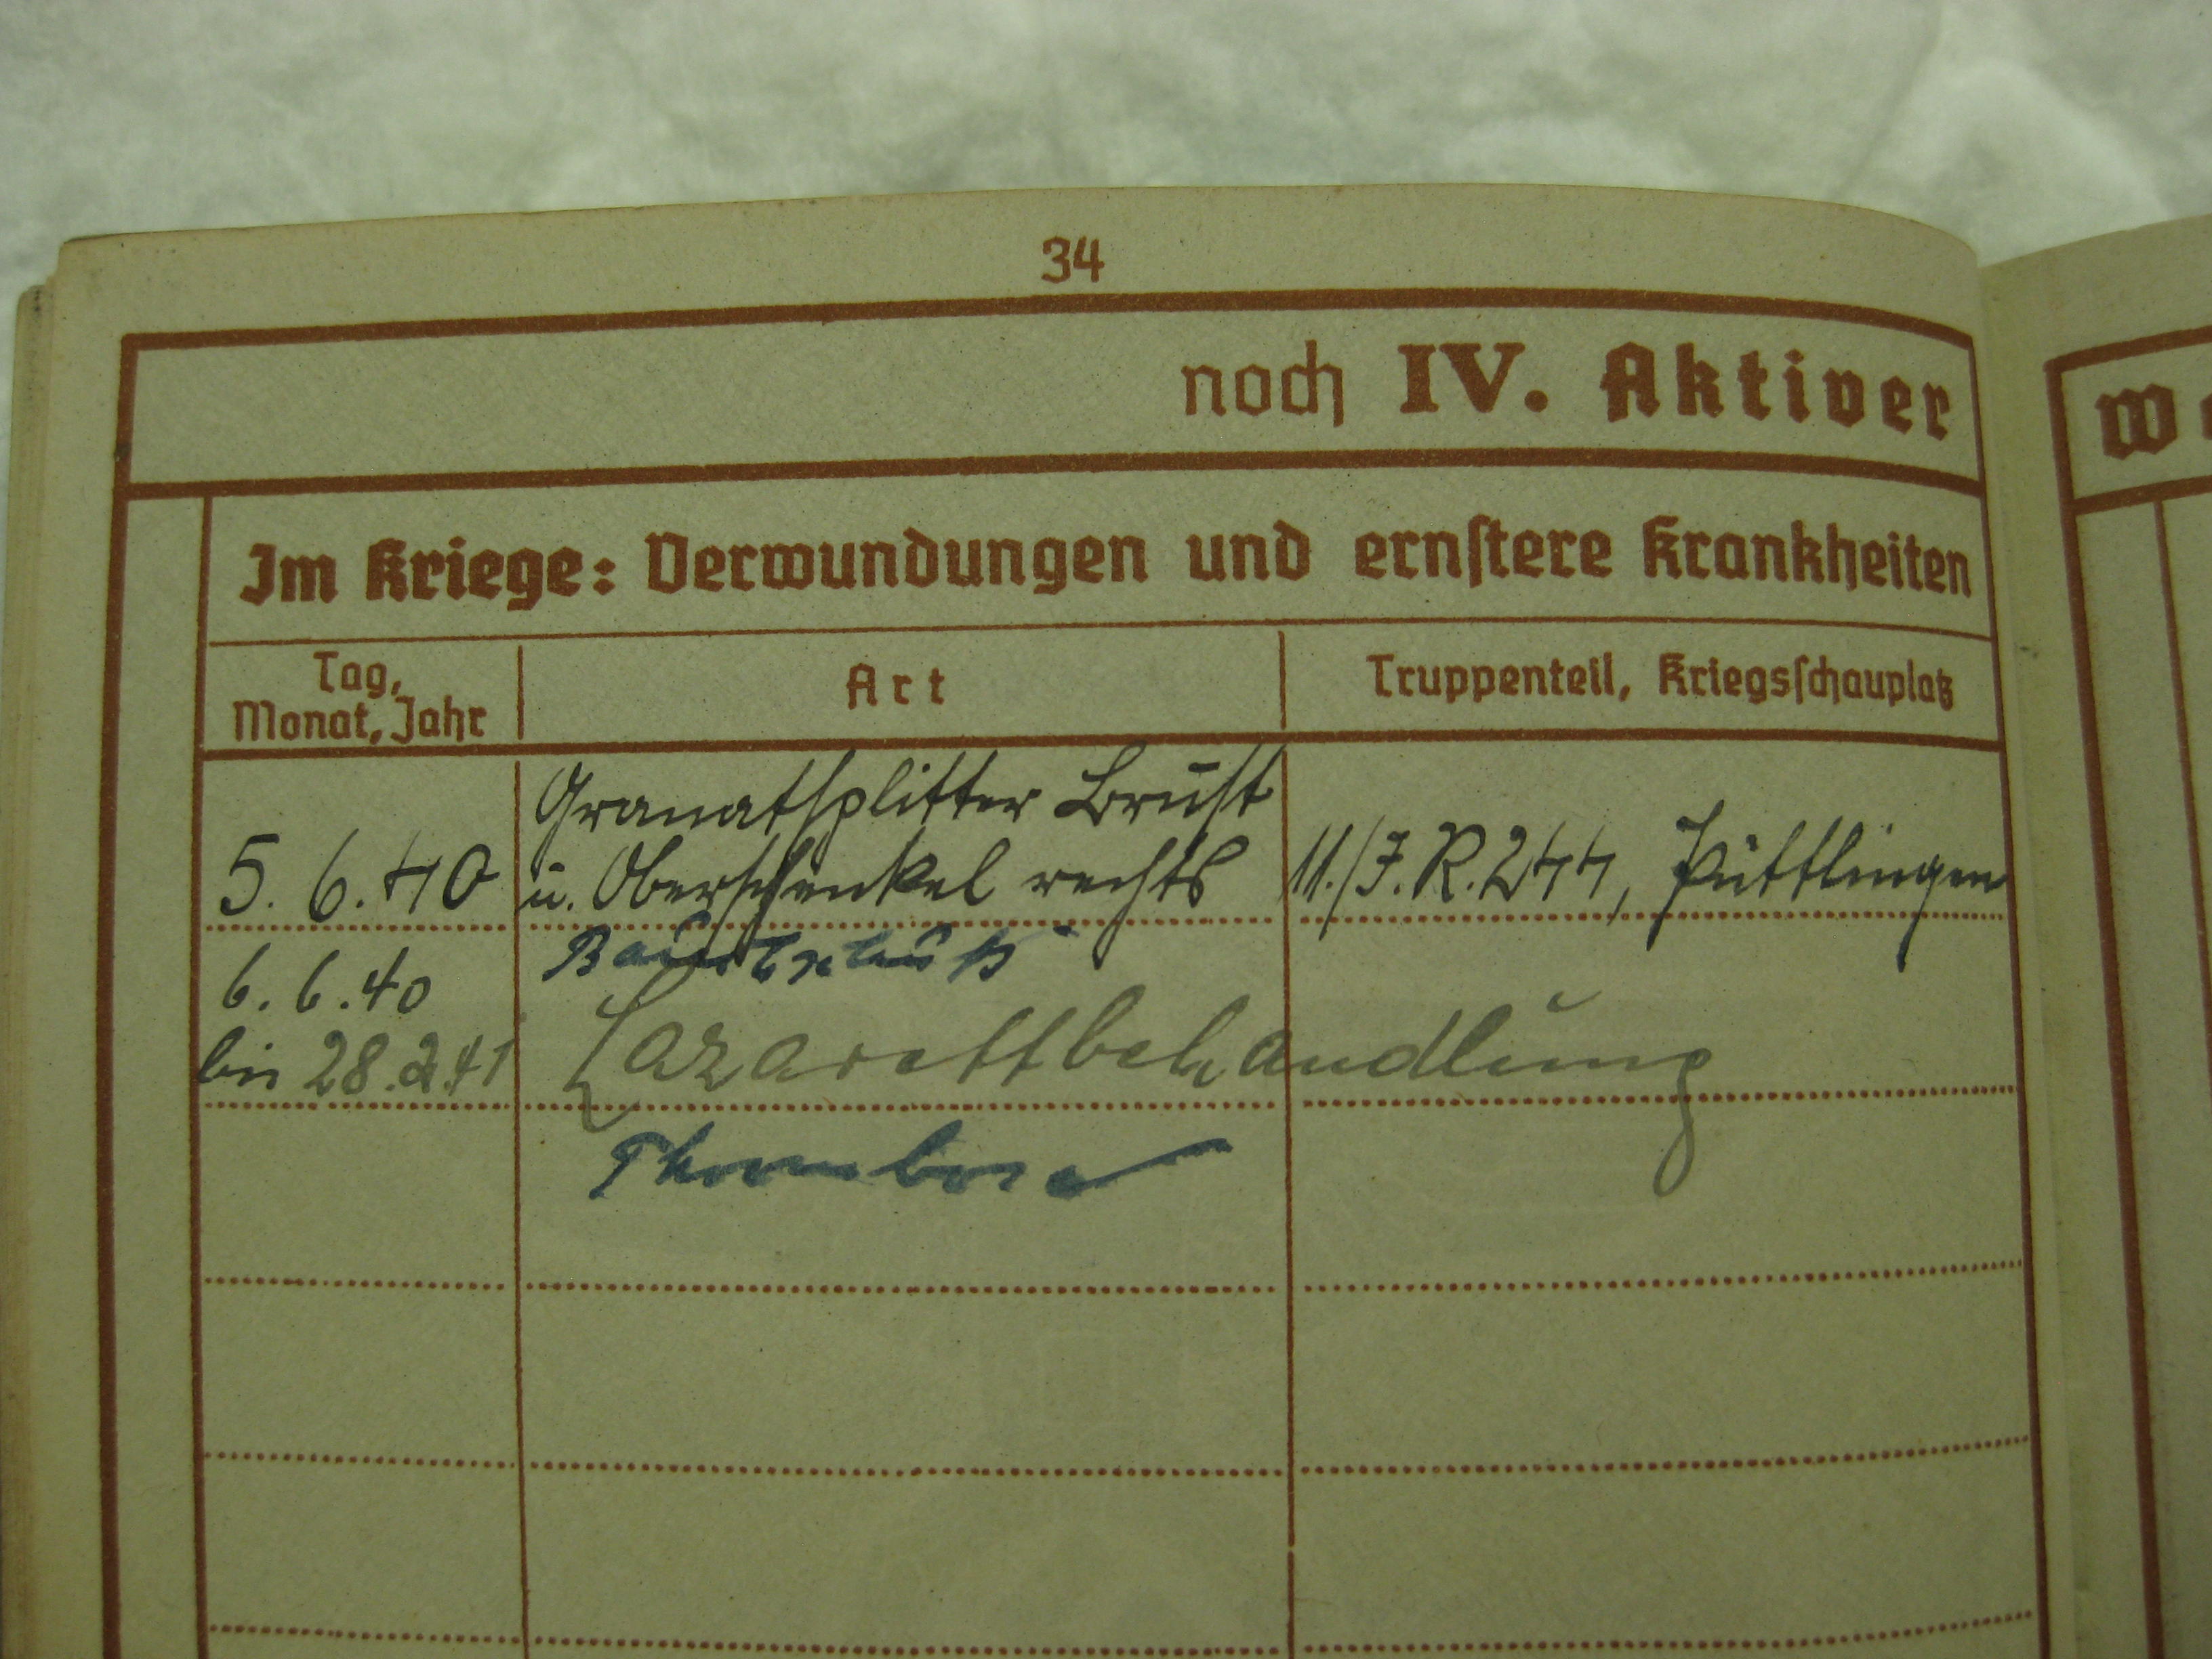 34
noch IV. Aktiver
W
Im Kriege: Verwundungen und ernstere Krankheiten
Tag, Monat, Jahr
Art
Truppenteil, Kriegsschauplatz
Granatsplitter Brust
5. 6. 40 u. Oberschenkel rechts 11./I.R. 244, Püttlingen
6. 6. 40
bis 28.2.41 Lazarettbehandlung
Thrombose